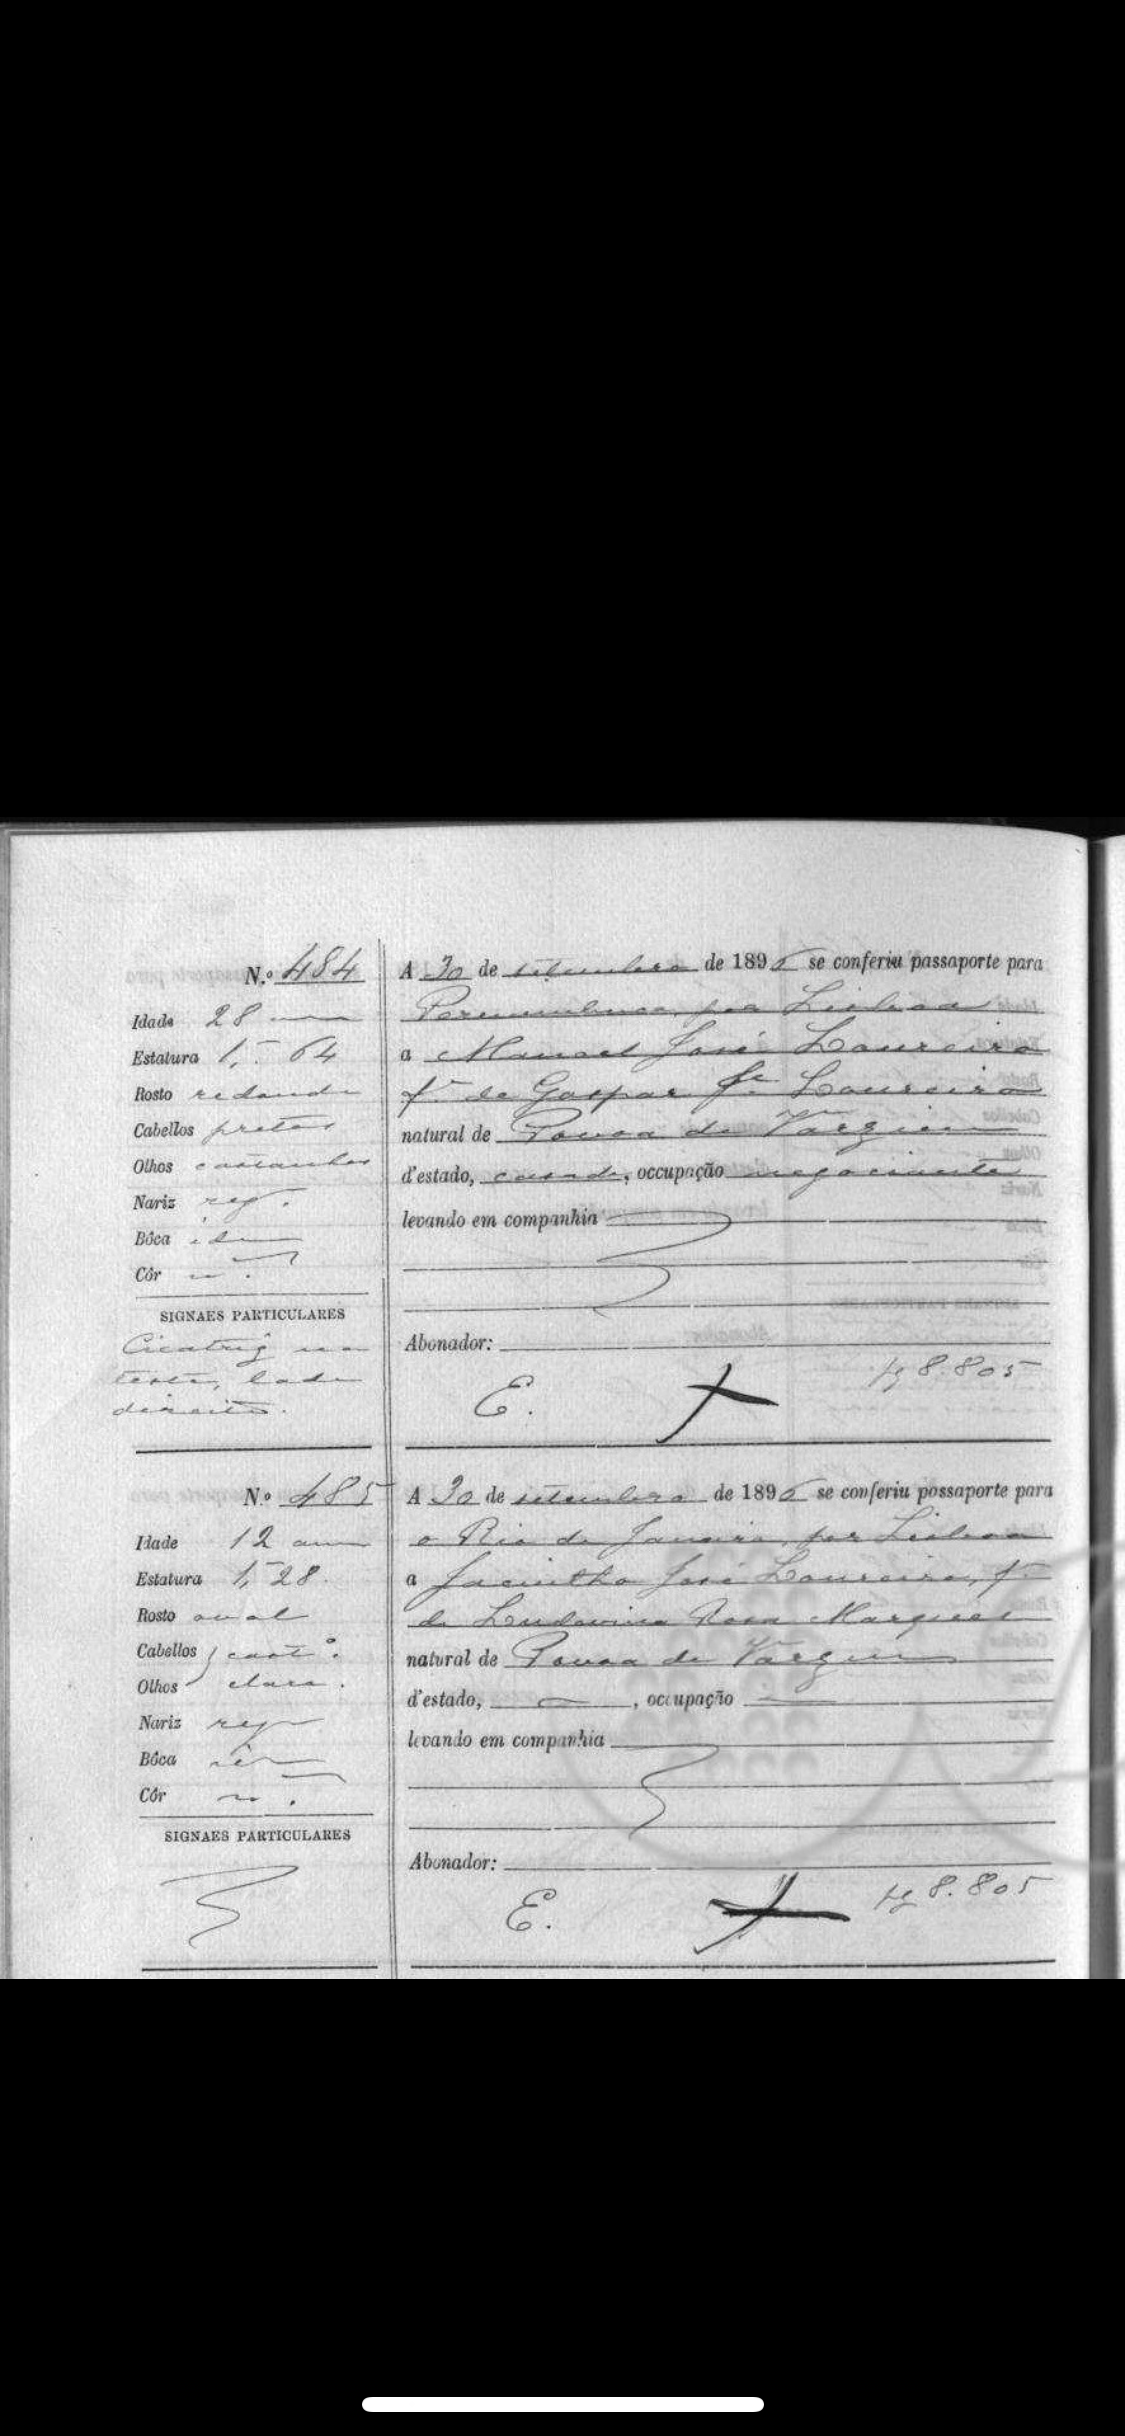 N.º 484
Idade 28
Estatura 1, 64
Rosto redondo
Cabellos pretos
Olhos castanhos
Nariz reg.
Bôca idem
Côr
SIGNAES PARTICULARES
Cicatriz na
testa, lado
direito.
A 30 de setembro de 189 se conferiu passaporte para
Pernambuco, por Lisboa
a Manoel José Loureiro
fº de Gaspar Loureiro
natural de Povoa de Varzim
d'estado, casado, occupação negociante
levando em companhia
Abonador:
E. 8.805
N.º 485
Idade 12 annos
Estatura 1, 28.
Rosto oval
Cabellos } cast.º
Olhos claro.
Nariz reg
Bôca
Côr
SIGNAES PARTICULARES
A 30 de setembro de 189 se conferiu passaporte para
o Rio de Janeiro, por Lisboa
a Jacintho José Loureiro, fº
de Ludovina Rosa Marques
natural de Povoa de Varzim
d'estado, , occupação
levando em companhia
Abonador:
E. 8.805